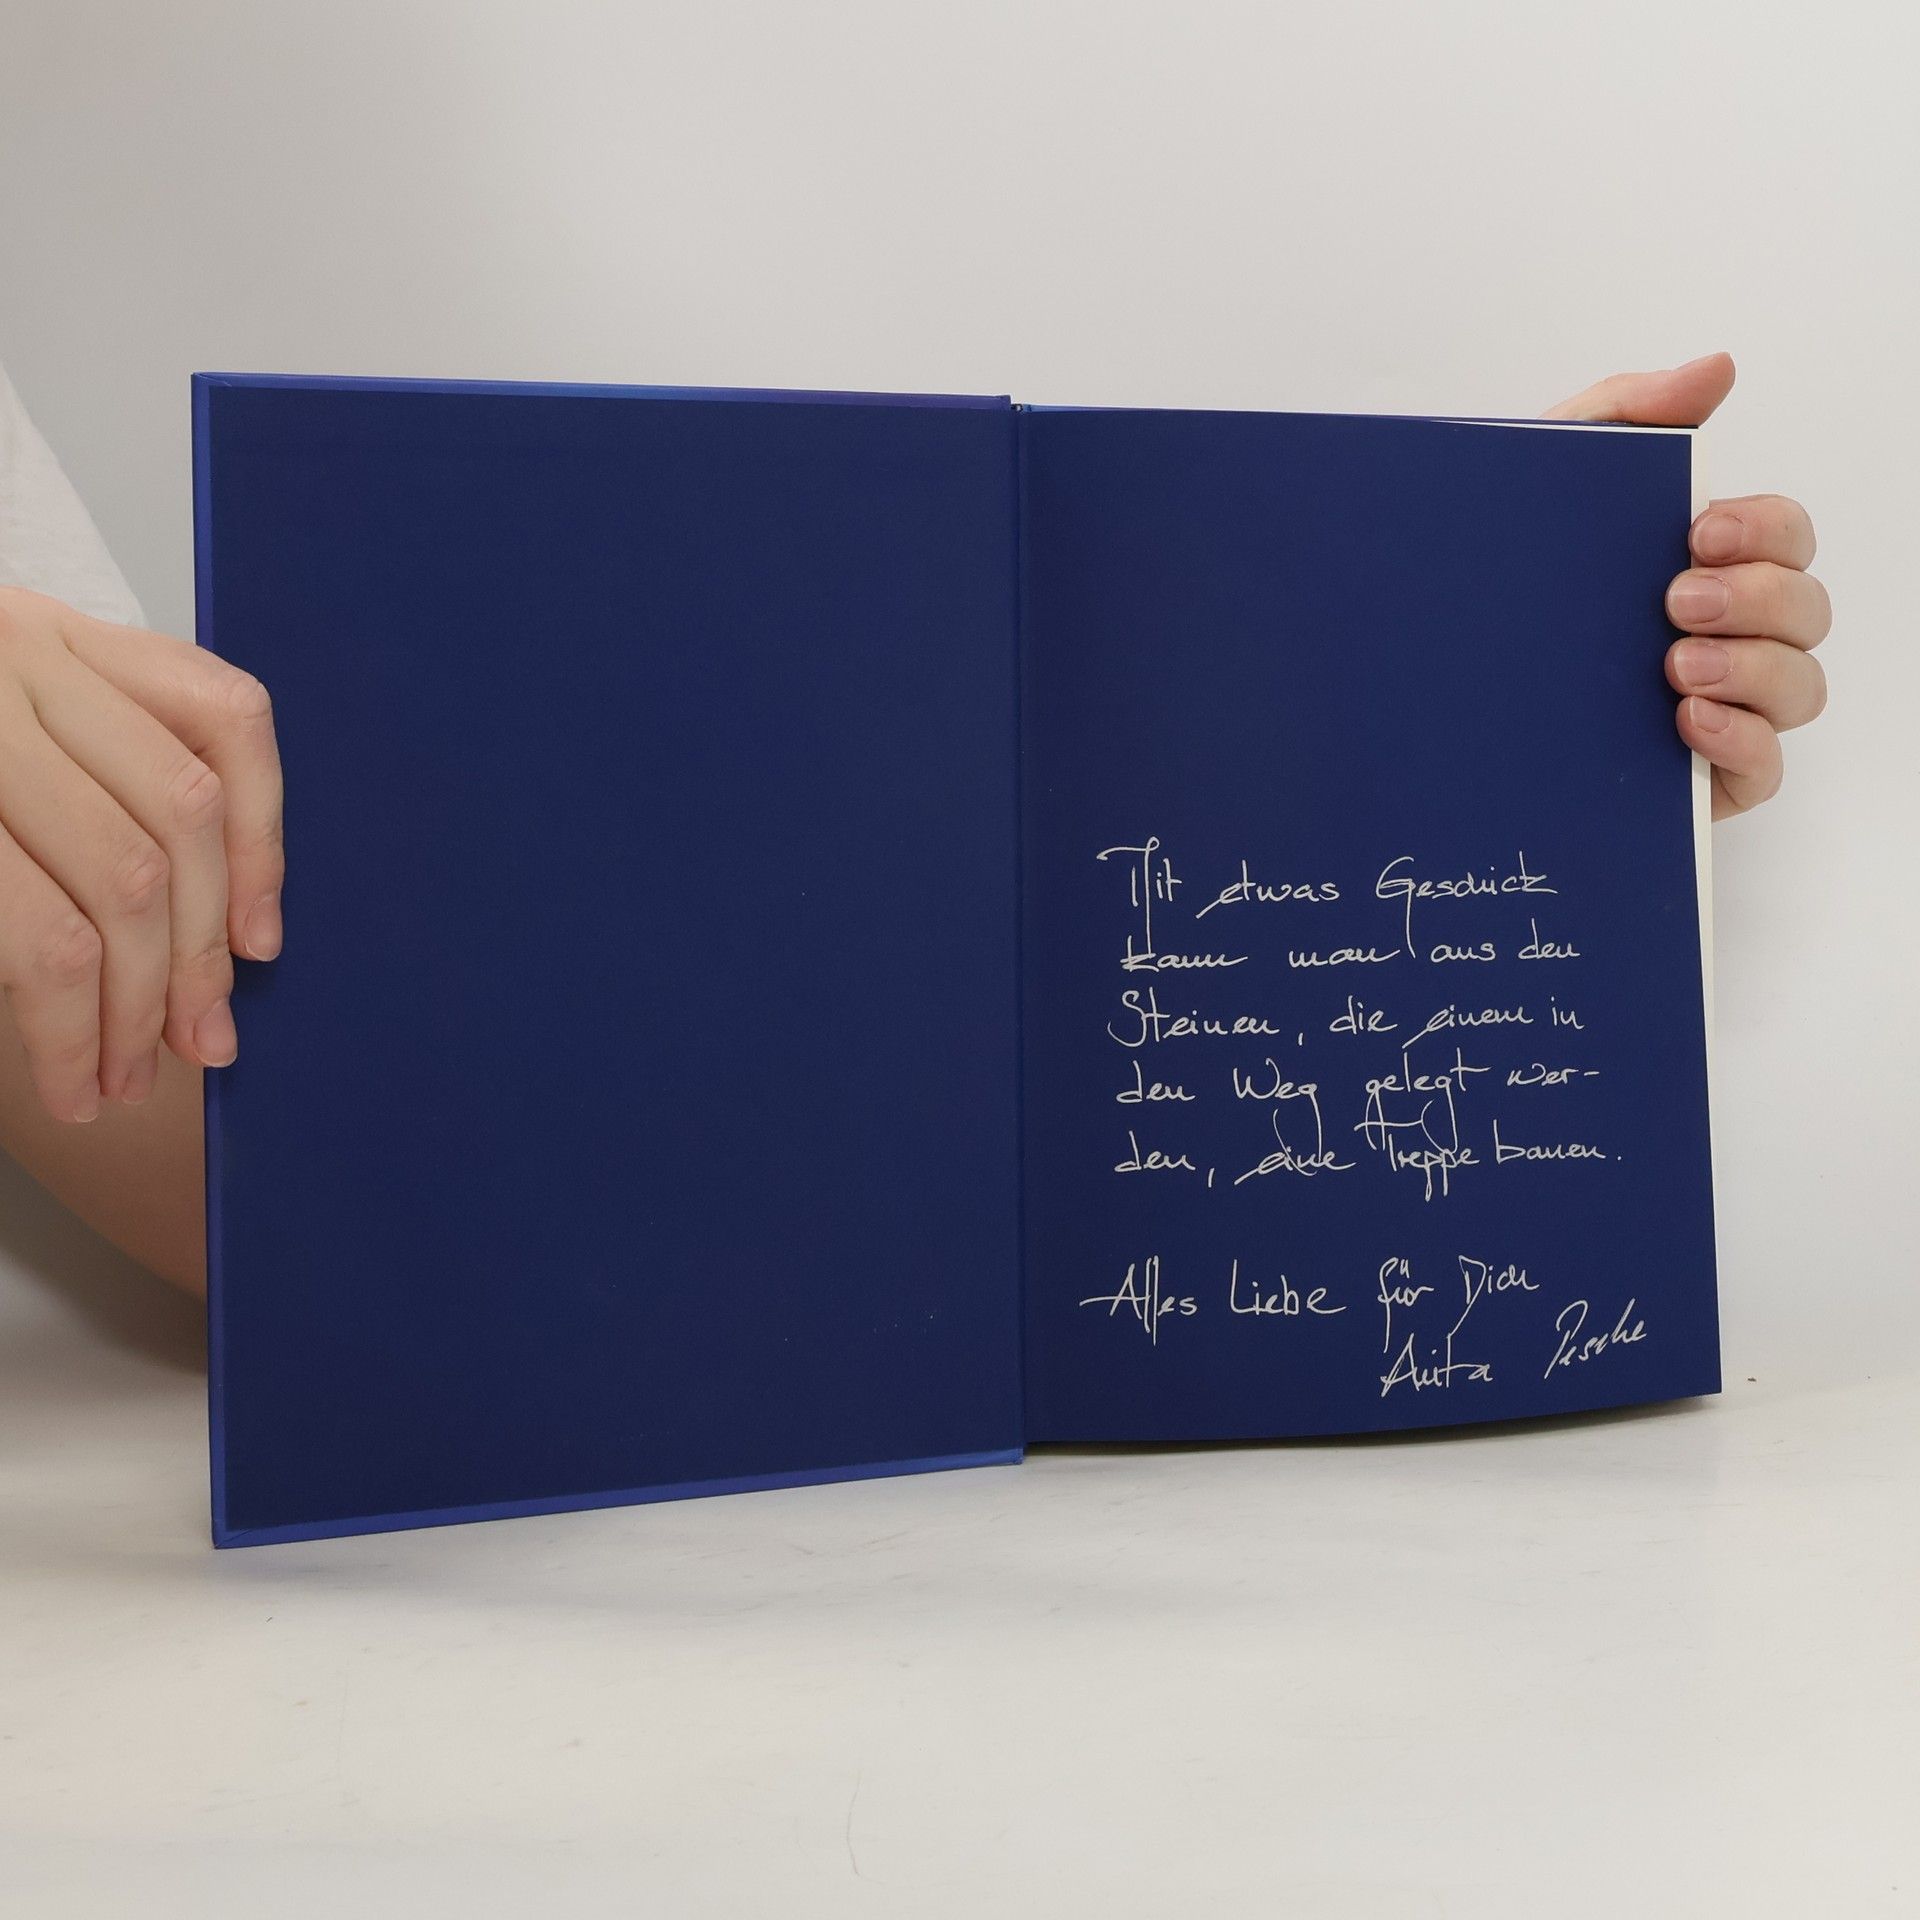 Mit etwas Geschick
kann man aus den
Steinen, die einem in
den Weg gelegt wer-
den, eine Treppe bauen.
Alles Liebe für Dich
Anita